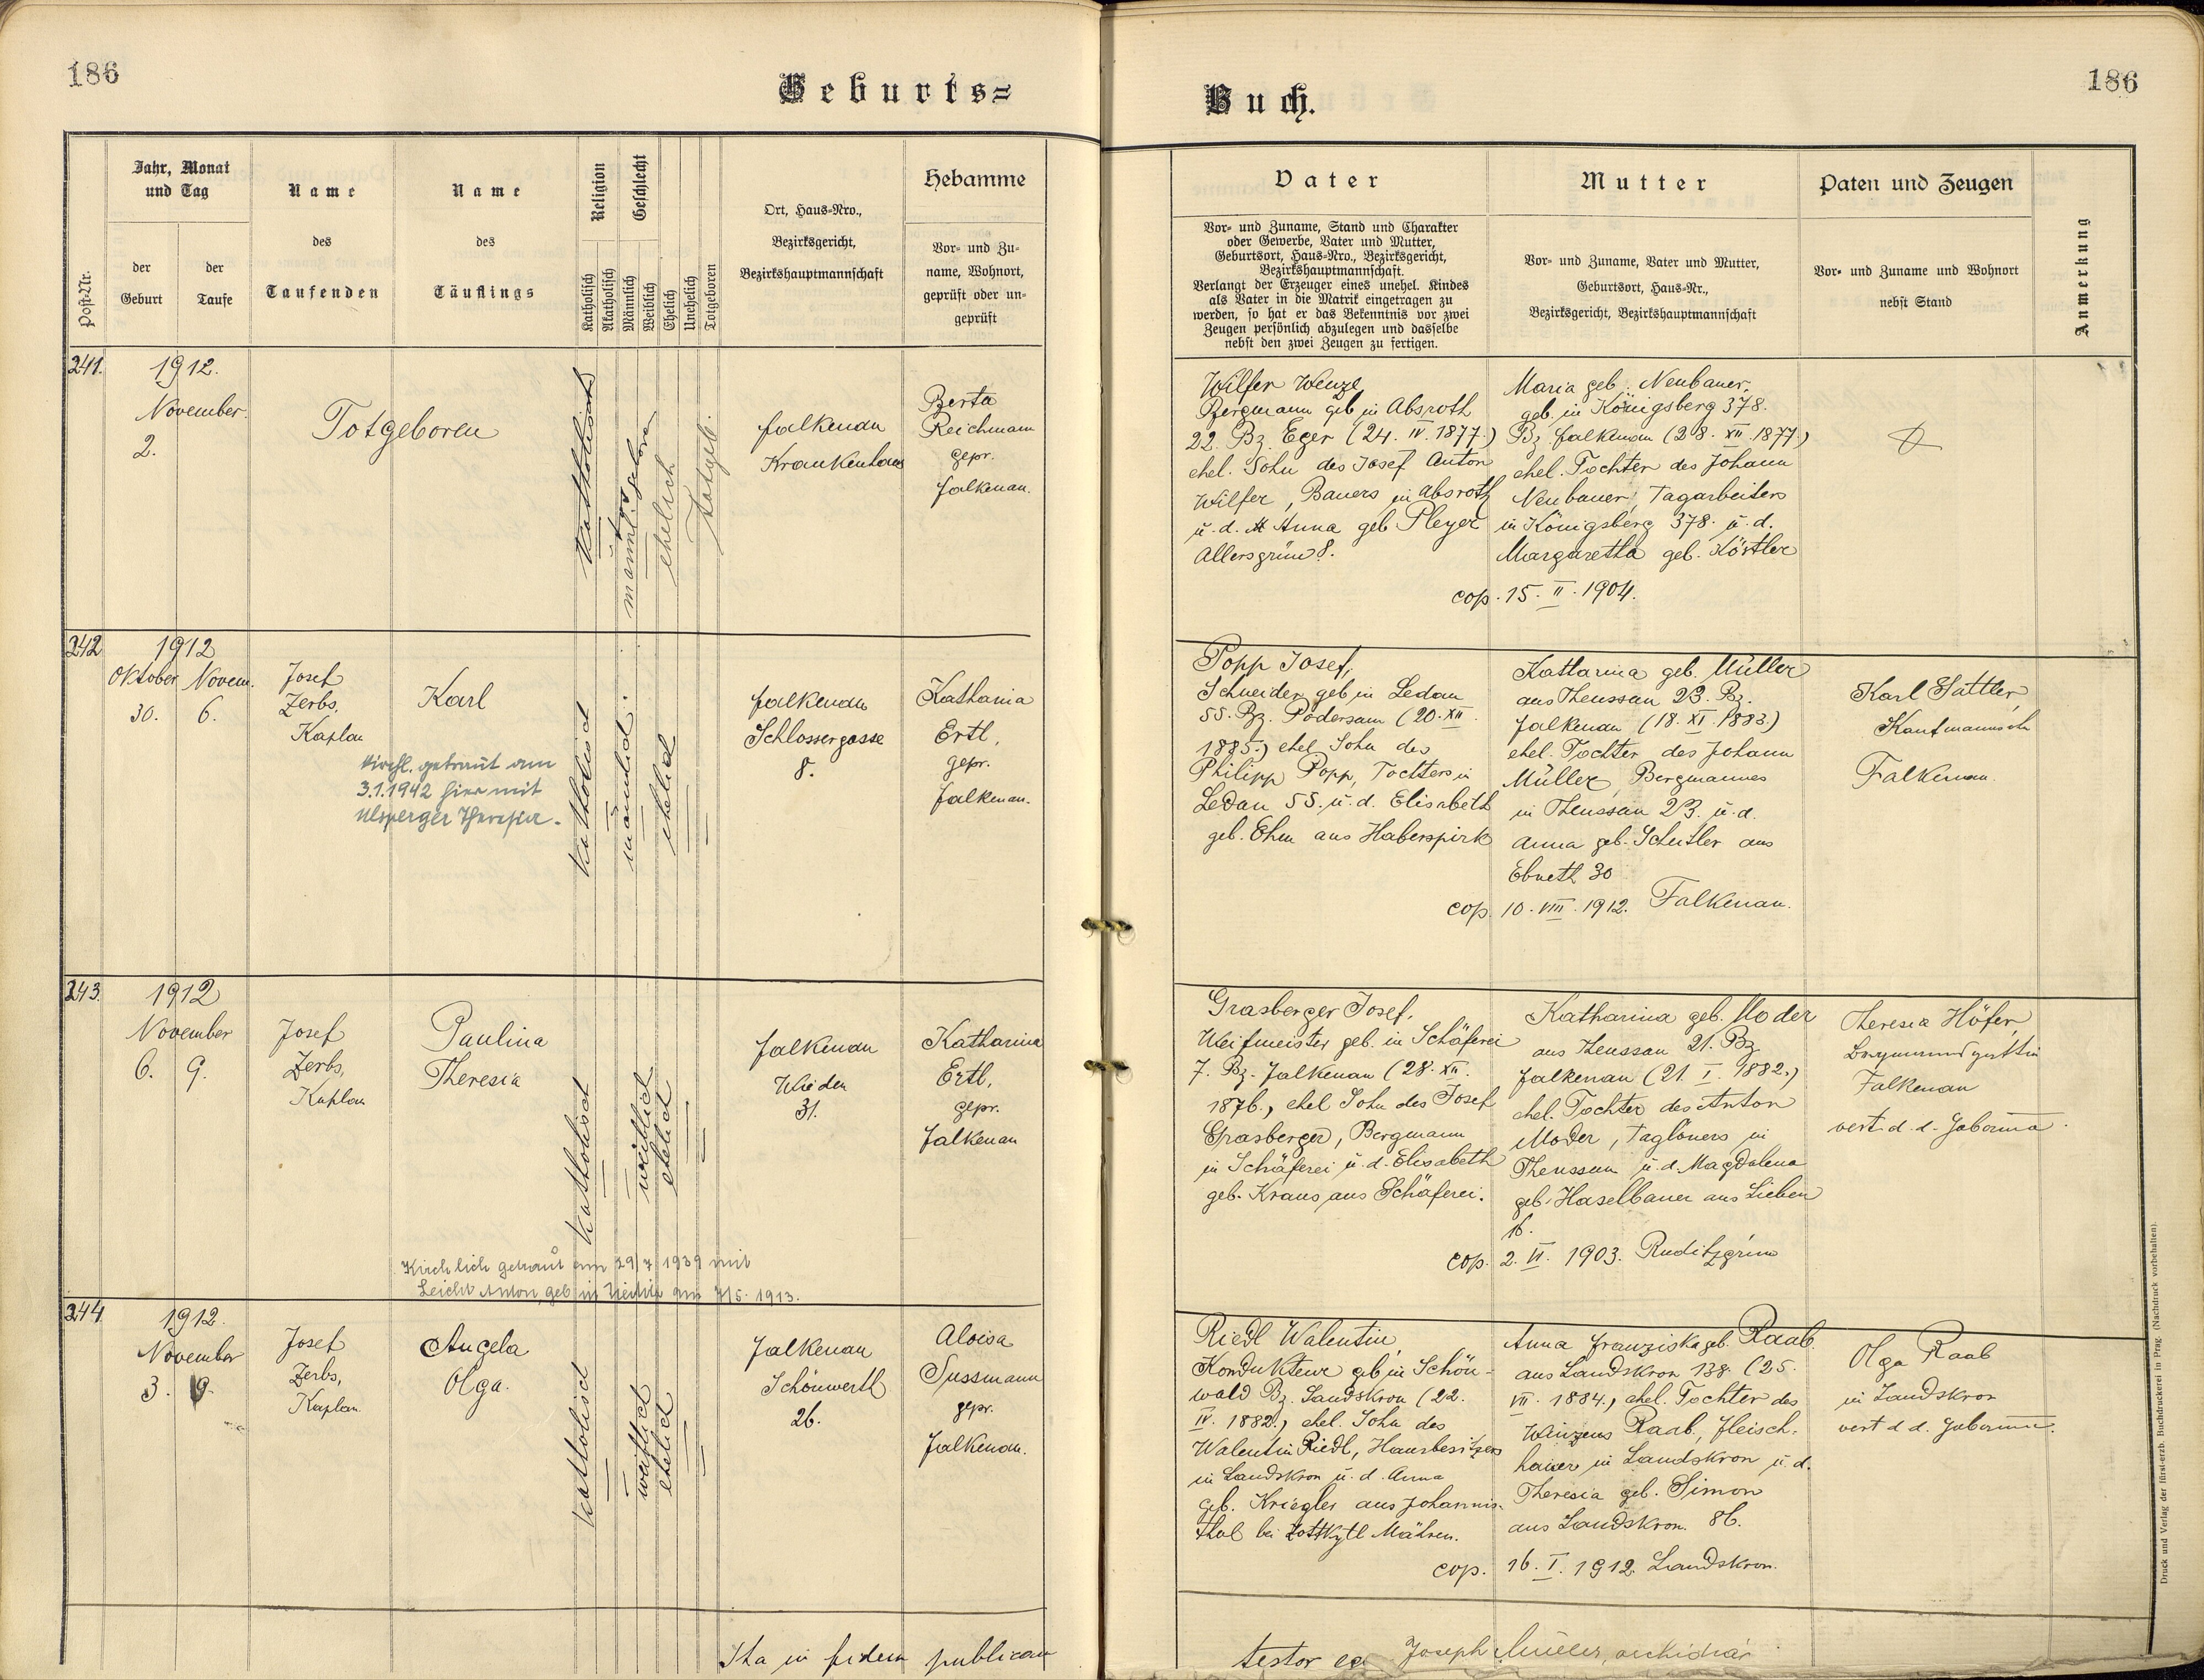 186
Geburts=
Buch.
186
Post-Nr.
Jahr, Monat
und Tag
der
Geburt
der
Taufe
Name
des
Taufenden
Name
des
Täuflings
Religion
Katholisch
Akatholisch
Geschlecht
Männlich
Weiblich
Ehelich
Unehelich
Totgeboren
Ort, Haus-Nro.,
Bezirksgericht,
Bezirkshauptmannschaft
Hebamme
Vor- und Zu-
name, Wohnort,
geprüft oder un-
geprüft
Vater
Vor- und Zuname, Stand und Charakter
oder Gewerbe, Vater und Mutter,
Geburtsort, Haus-Nro., Bezirksgericht,
Bezirkshauptmannschaft.
Verlangt der Erzeuger eines unehel. Kindes
als Vater in die Matrik eingetragen zu
werden, so hat er das Bekenntnis vor zwei
Zeugen persönlich abzulegen und dasselbe
nebst den zwei Zeugen zu fertigen.
Mutter
Vor- und Zuname, Vater und Mutter,
Geburtsort, Haus-Nr.,
Bezirksgericht, Bezirkshauptmannschaft
Paten und Zeugen
Vor- und Zuname und Wohnort
nebst Stand
Anmerkung
241.
1912.
November.
2.
Totgeboren
katholisch
männl.
ehelich
totgeb.
Falkenau
Krankenhaus
Berta
Reichmann
gepr.
Falkenau.
Wilfer Wenzl
Bergmann geb in Absroth
22. Bz. Eger (24. IV. 1877.)
ehel. Sohn des Josef Anton
Wilfer, Bauers in Absroth
u. d. Anna geb Pleyer
Allersgrün 8.
Maria geb. Neubauer,
geb. in Königsberg 378.
Bz. Falkenau (28. XII. 1877.)
ehel. Tochter des Johann
Neubauer, Tagarbeiters
in Königsberg 378. u. d.
Margaretha geb. Köstler
cop. 15. II. 1904.
242
1912
Oktober Novem.
30. 6.
Josef
Zerbs,
Kaplan
Karl
Kirchl. getraut am
3.1.1942 hier mit
Ulsperger Theresia.
katholisch
männlich.
ehelich
Falkenau
Schlossergasse
8.
Katharina
Ertl,
gepr.
Falkenau.
Popp Josef,
Schneider geb in Ledau
55. Bz. Podersam (20. XII.
1885.) ehel Sohn des
Philipp Popp, in
Ledau 55. u. d. Elisabeth
geb. Ehm aus Haberspirk
Katharina geb. Müller
aus Theussau 23. Bz.
Falkenau (18. XI. 1883.)
ehel. Tochter des Johann
Müller, Bergmannes
in Theussau 23. u. d.
Anna geb. aus
Ebneth 30
cop. 10. VIII. 1912. Falkenau.
Karl Sattler,
Falkenau.
243.
1912
November
6. 9.
Josef
Zerbs,
Kaplan
Paulina
Theresia
Kirchlich getraut am 29/7 1939 mit
Leicht Anton, geb in am 7/5. 1913.
katholisch
weiblich
ehelich
Falkenau
Wieden
31.
Katharina
Ertl,
gepr.
Falkenau
Grasberger Josef,
geb. in Schäferei
7. Bz. Falkenau (28. XII.
1876., ehel Sohn des Josef
Grasberger, Bergmann
in Schäferei u. d. Elisabeth
geb. Kraus aus Schäferei.
Katharina geb. Moder
aus Theussau 21. Bz
Falkenau (21. I. 1882.)
ehel. Tochter des Anton
Moder, Taglöners in
Theussau u. d. Magdalena
geb. Haselbauer aus Lieben
16.
cop. 2. VI. 1903. Ruditzgrün
Theresia Höfer,
Bergmannsgattin
Falkenau
vert. d. d.
244
1912.
November
3. 9.
Josef
Zerbs,
Kaplan.
Angela
Olga.
katholisch
weiblich
ehelich
Falkenau
Schönwerth
26.
Aloisa
Sussmann
gepr.
Falkenau.
Riedl Valentin,
Kondukteur geb in Schön-
wald Bz. Landskron (22.
IV. 1882., ehel. Sohn des
Valentin Riedl, Hausbesitzers
in Landskron u. d. Anna
geb. Kriegler aus Johannis-
thal bei Mähren.
Anna Franziska geb. Raab
aus Landskron 138. (25.
VII. 1884., ehel. Tochter des
Winzens Raab, Fleisch-
hauer in Landskron u. d.
Theresia geb. Simon
aus Landskron. 86.
cop. 16. I. 1912 Landskron.
Olga Raab
in Landskron
vert d d.
Ita in fidem publicam
testor Joseph Müller,
Druck und Verlag der fürst-erzb. Buchdruckerei in Prag. (Nachdruck vorbehalten).